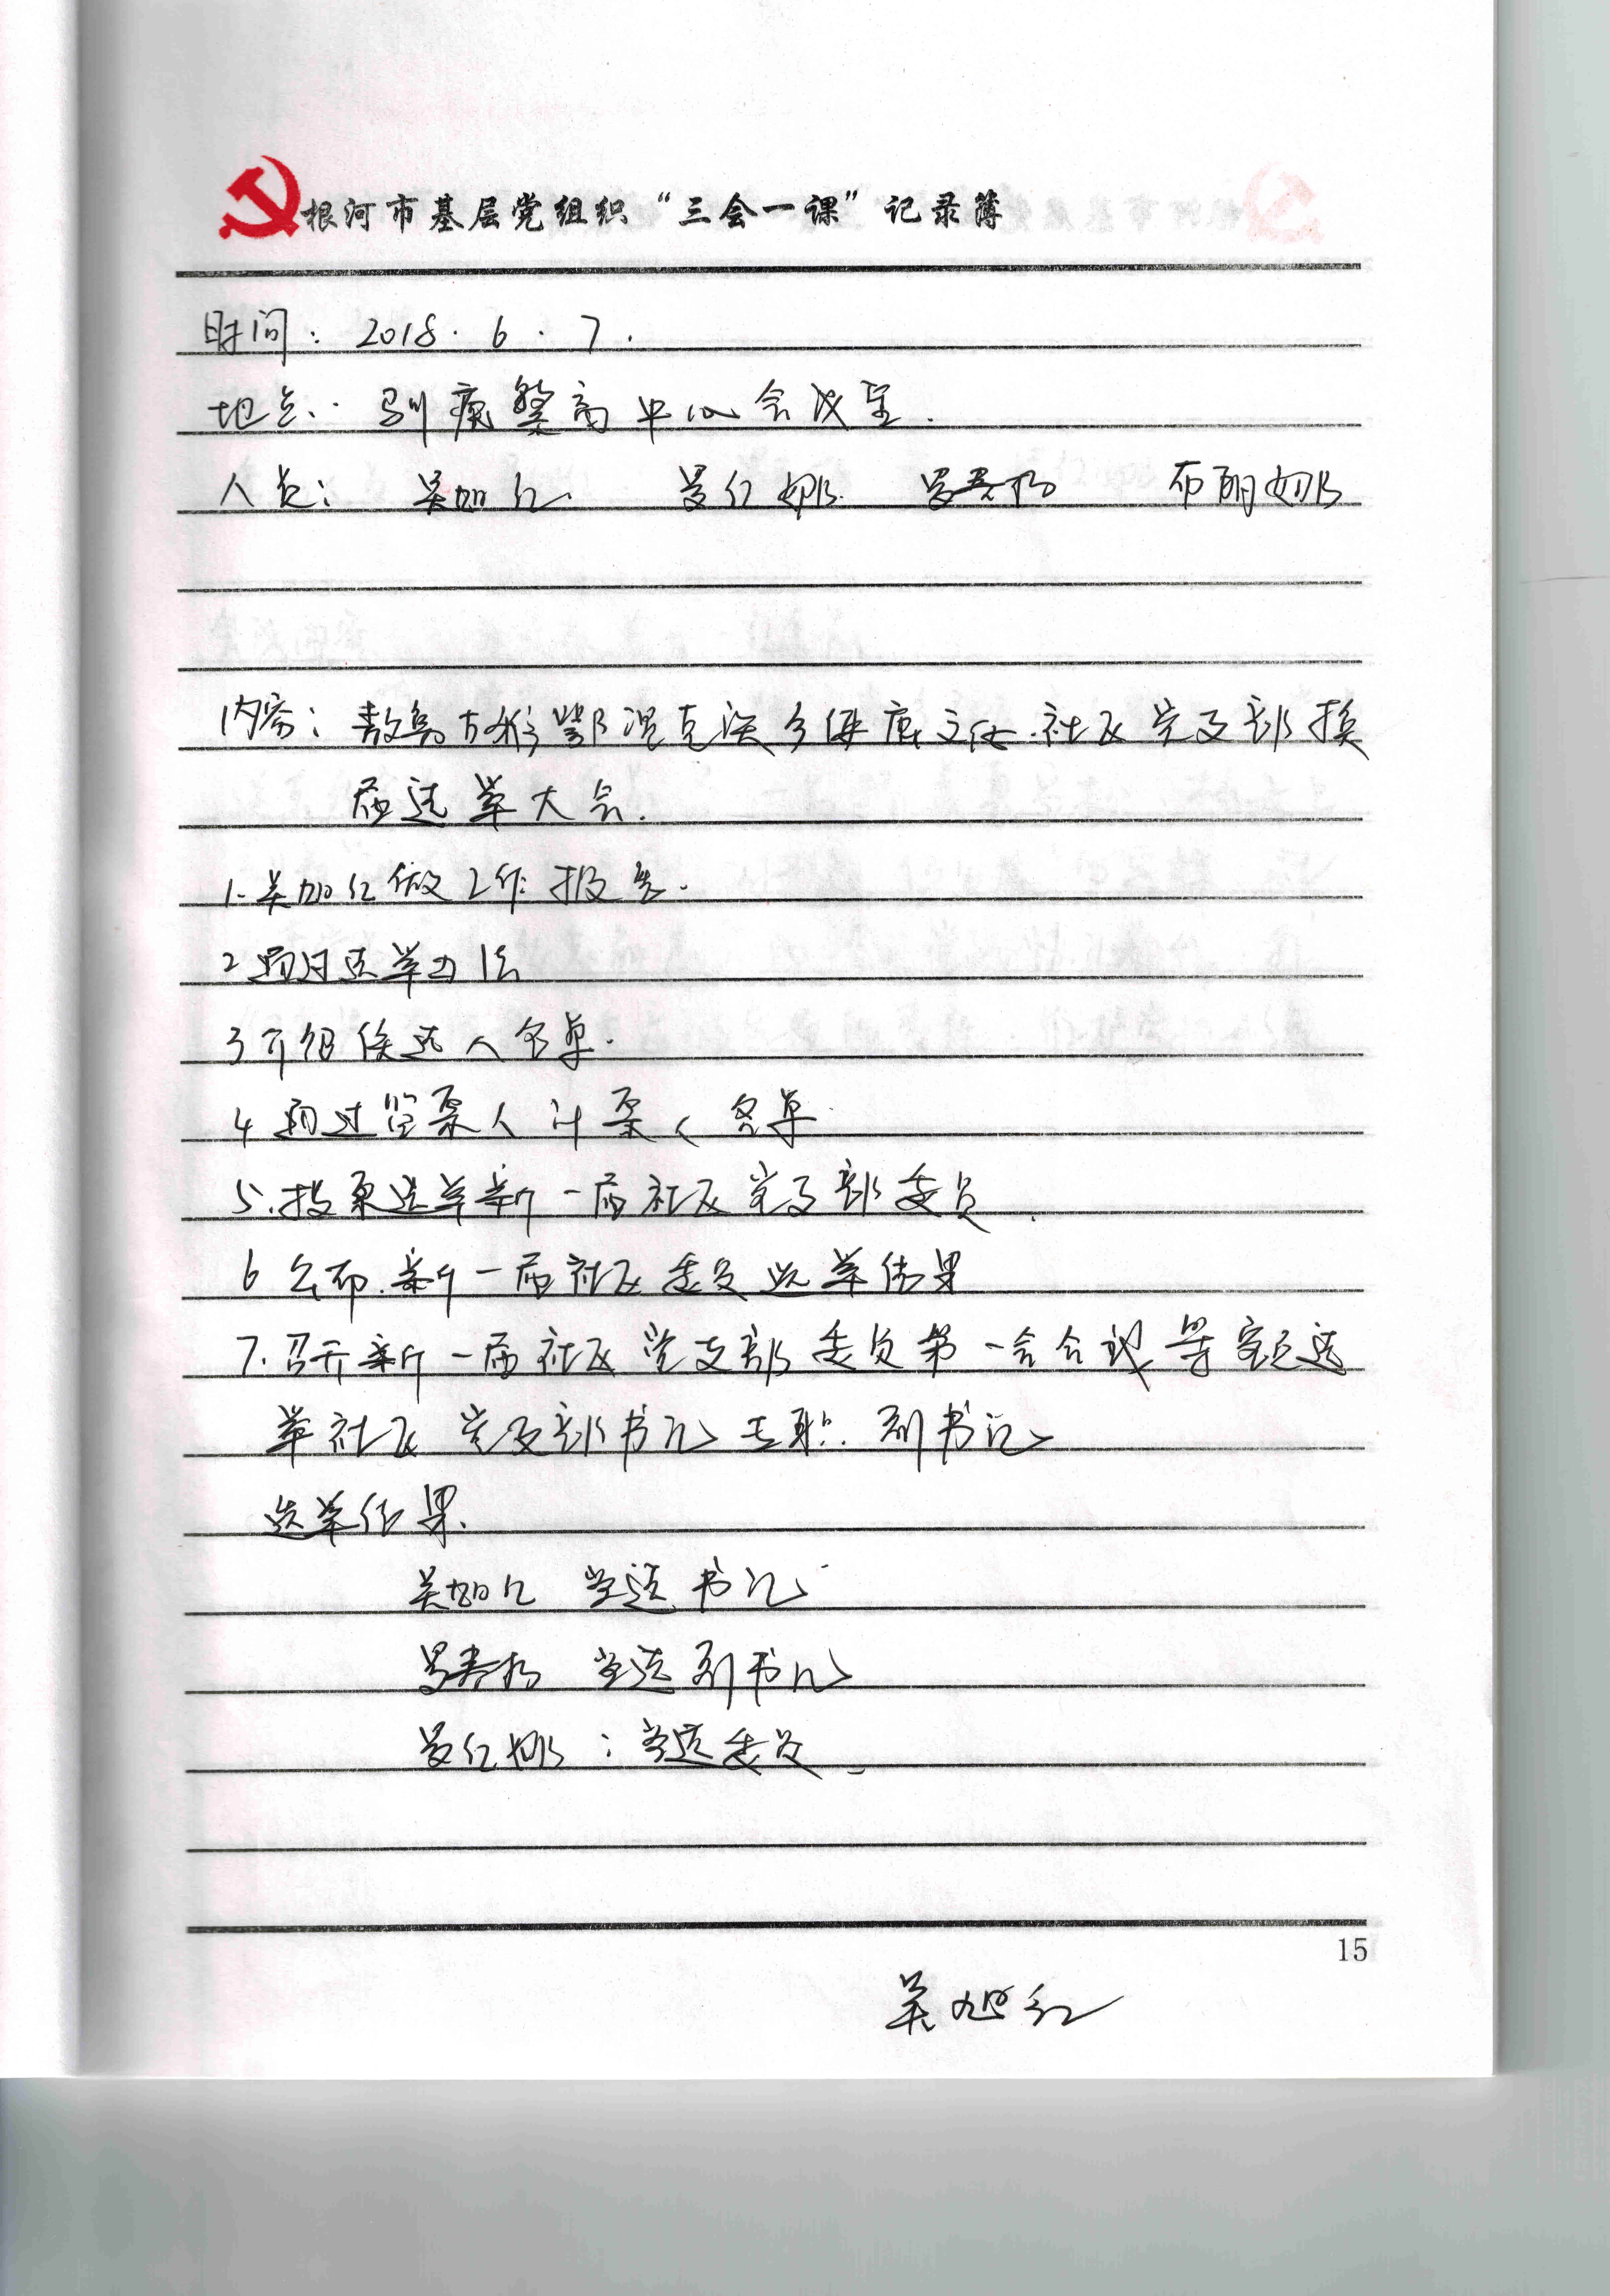 根河市基层党组织“三会一课”记录簿
时间：2018.6.7.
地点：驯鹿繁育中心会议室.
人员：吴旭红 罗红娜
内容：敖鲁古雅鄂温克族乡 社区党支部换
届选举大会.
1.吴旭红做工作报告.
2通过选举办法
3介绍候选人名单.
4通过监票人计票人名单
5.投票选举新一届社区党支部委员.
6公布.新一届社区委员选举结果
7.召开新一届社区党支部委员第一 会议 等额选
举社区党支部书记专职.副书记
选举结果.
吴旭红 当选书记
当选副书记
罗红娜：当选委员
15
吴旭红